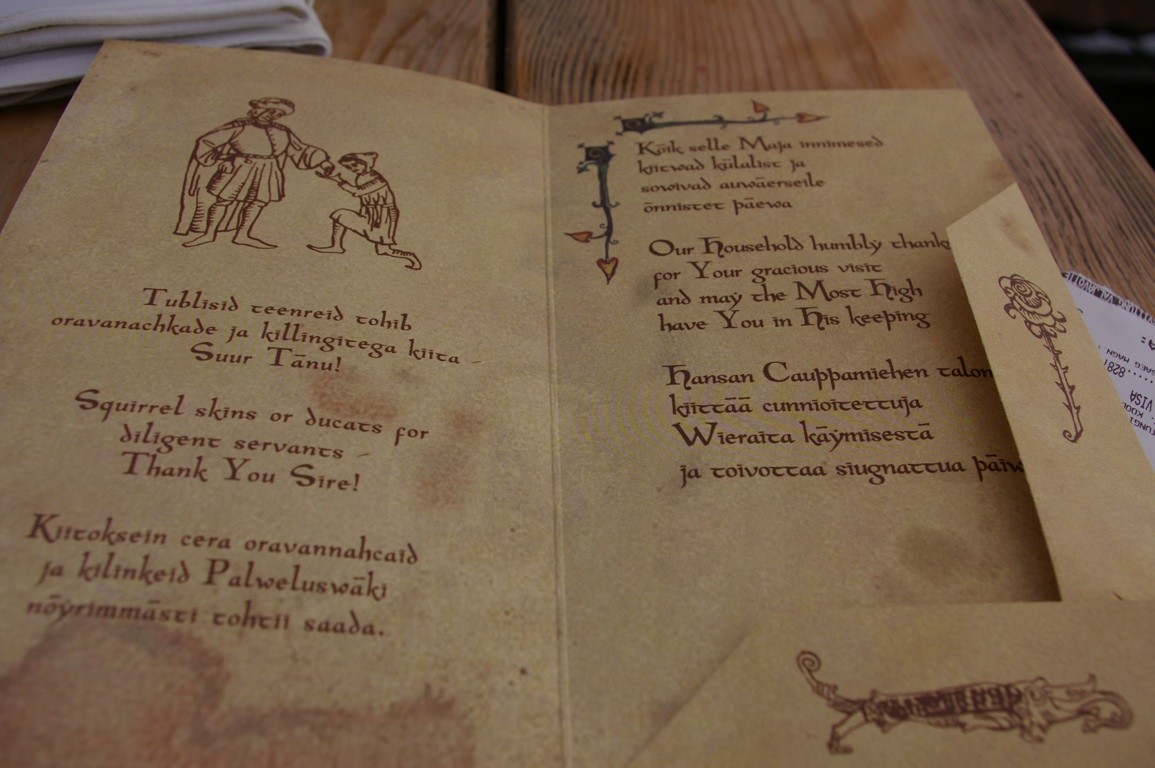 Tublisid teenreid tohib
oravanachkade ja killingitega kiita -
Suur Tänu!
Squirrel skins or ducats for
diligent servants -
Thank You Sire!
Kiitoksein cera oravannahcaid
ja kilinkeid Palweluswäki
nöyrimmästi tohtii saada.
Köik selle Maja innimesed
kiitwad külalist ja
sowivad auwäerseile
önnistet päewa
Our Household humbly thank
for Your gracious visit
and may the Most High
have You in His keeping
Hansan Cauppamiehen talon
kiittää cunnioitettuja
Wieraita käymisestä
ja toivottaa siugnattua päiw
8281
VISA